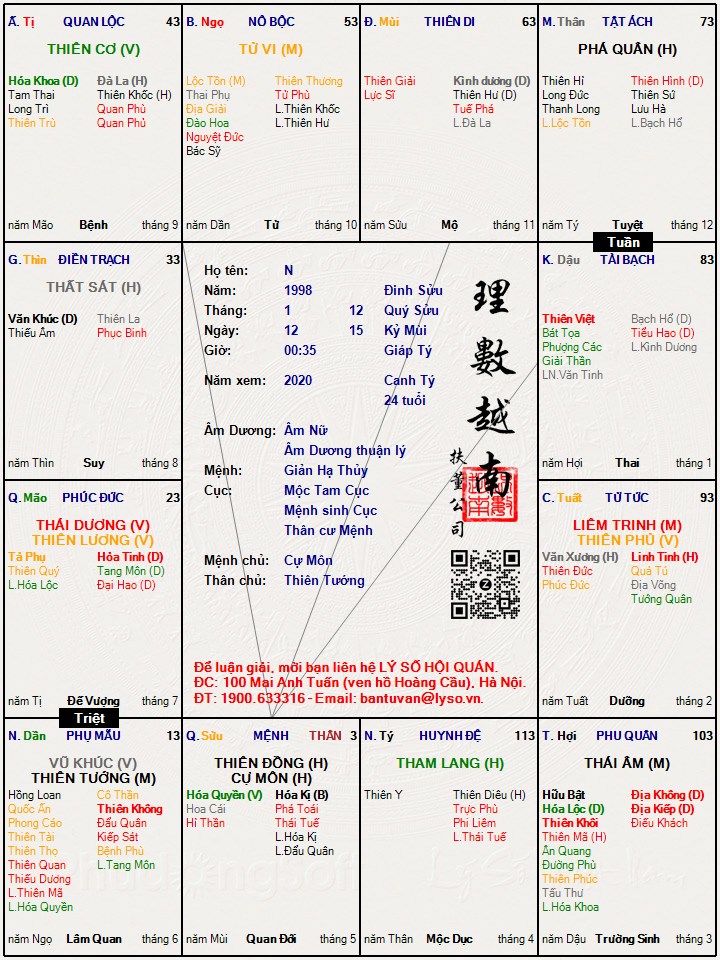 Ấ. Tị QUAN LỘC 43
THIÊN CƠ (V)
Hóa Khoa (D) Đà La (H)
Tam Thai Thiên Khốc (H)
Long Trì Quan Phù
Thiên Trù Quan Phủ
năm Mão Bệnh tháng 9
B. Ngọ NÔ BỘC 53
TỬ VI (M)
Lộc Tồn (M) Thiên Thương
Thai Phụ Tử Phù
Địa Giải L.Thiên Khốc
Đào Hoa L.Thiên Hư
Nguyệt Đức
Bác Sỹ
năm Dần Tử tháng 10
Đ. Mùi THIÊN DI 63
Thiên Giải Kình dương (D)
Lực Sĩ Thiên Hư (D)
Tuế Phá
L.Đà La
năm Sửu Mộ tháng 11
M. Thân TẬT ÁCH 73
PHÁ QUÂN (H)
Thiên Hỉ Thiên Hình (D)
Long Đức Thiên Sứ
Thanh Long Lưu Hà
L.Lộc Tồn L.Bạch Hổ
năm Tý Tuyệt tháng 12
Tuần
G. Thìn ĐIỀN TRẠCH 33
THẤT SÁT (H)
Văn Khúc (D) Thiên La
Thiếu Âm Phục Binh
năm Thìn Suy tháng 8
Họ tên: N
Năm: 1998 Đinh Sửu
Tháng: 1 12 Quý Sửu
Ngày: 12 15 Kỷ Mùi
Giờ: 00:35 Giáp Tý
Năm xem: 2020 Canh Tý
24 tuổi
Âm Dương: Âm Nữ
Âm Dương thuận lý
Mệnh: Giản Hạ Thủy
Cục: Mộc Tam Cục
Mệnh sinh Cục
Thân cư Mệnh
Mệnh chủ: Cự Môn
Thân chủ: Thiên Tướng
理數越南
扶董公司
Z
Để luận giải, mời bạn liên hệ LÝ SỐ HỘI QUÁN.
ĐC: 100 Mai Anh Tuấn (ven hồ Hoàng Cầu), Hà Nội.
ĐT: 1900.633316 - Email: bantuvan@lyso.vn.
K. Dậu TÀI BẠCH 83
Thiên Việt Bạch Hổ (D)
Bát Tọa Tiểu Hao (D)
Phượng Các L.Kình Dương
Giải Thần
LN.Văn Tinh
năm Hợi Thai tháng 1
Q. Mão PHÚC ĐỨC 23
THÁI DƯƠNG (V)
THIÊN LƯƠNG (V)
Tả Phụ Hỏa Tinh (D)
Thiên Quý Tang Môn (D)
L.Hóa Lộc Đại Hao (D)
năm Tị Đế Vượng tháng 7
Triệt
C. Tuất TỬ TỨC 93
LIÊM TRINH (M)
THIÊN PHỦ (V)
Văn Xương (H) Linh Tinh (H)
Thiên Đức Quả Tú
Phúc Đức Địa Võng
Tướng Quân
năm Tuất Dưỡng tháng 2
N. Dần PHỤ MẪU 13
VŨ KHÚC (V)
THIÊN TƯỚNG (M)
Hồng Loan Cô Thần
Quốc Ấn Thiên Không
Phong Cáo Đẩu Quân
Thiên Tài Kiếp Sát
Thiên Thọ Bệnh Phù
Thiên Quan L.Tang Môn
Thiếu Dương
L.Thiên Mã
L.Hóa Quyền
năm Ngọ Lâm Quan tháng 6
Q. Sửu MỆNH THÂN 3
THIÊN ĐỒNG (H)
CỰ MÔN (H)
Hóa Quyền (V) Hóa Kị (B)
Hoa Cái Phá Toái
Hỉ Thần Thái Tuế
L.Hóa Kị
L.Đẩu Quân
năm Mùi Quan Đới tháng 5
N. Tý HUYNH ĐỆ 113
THAM LANG (H)
Thiên Y Thiên Diêu (H)
Trực Phù
Phi Liêm
L.Thái Tuế
năm Thân Mộc Dục tháng 4
T. Hợi PHU QUÂN 103
THÁI ÂM (M)
Hữu Bật Địa Không (D)
Hóa Lộc (D) Địa Kiếp (D)
Thiên Khôi Điếu Khách
Thiên Mã (H)
Ân Quang
Đường Phù
Thiên Phúc
Tấu Thư
L.Hóa Khoa
năm Dậu Trường Sinh tháng 3